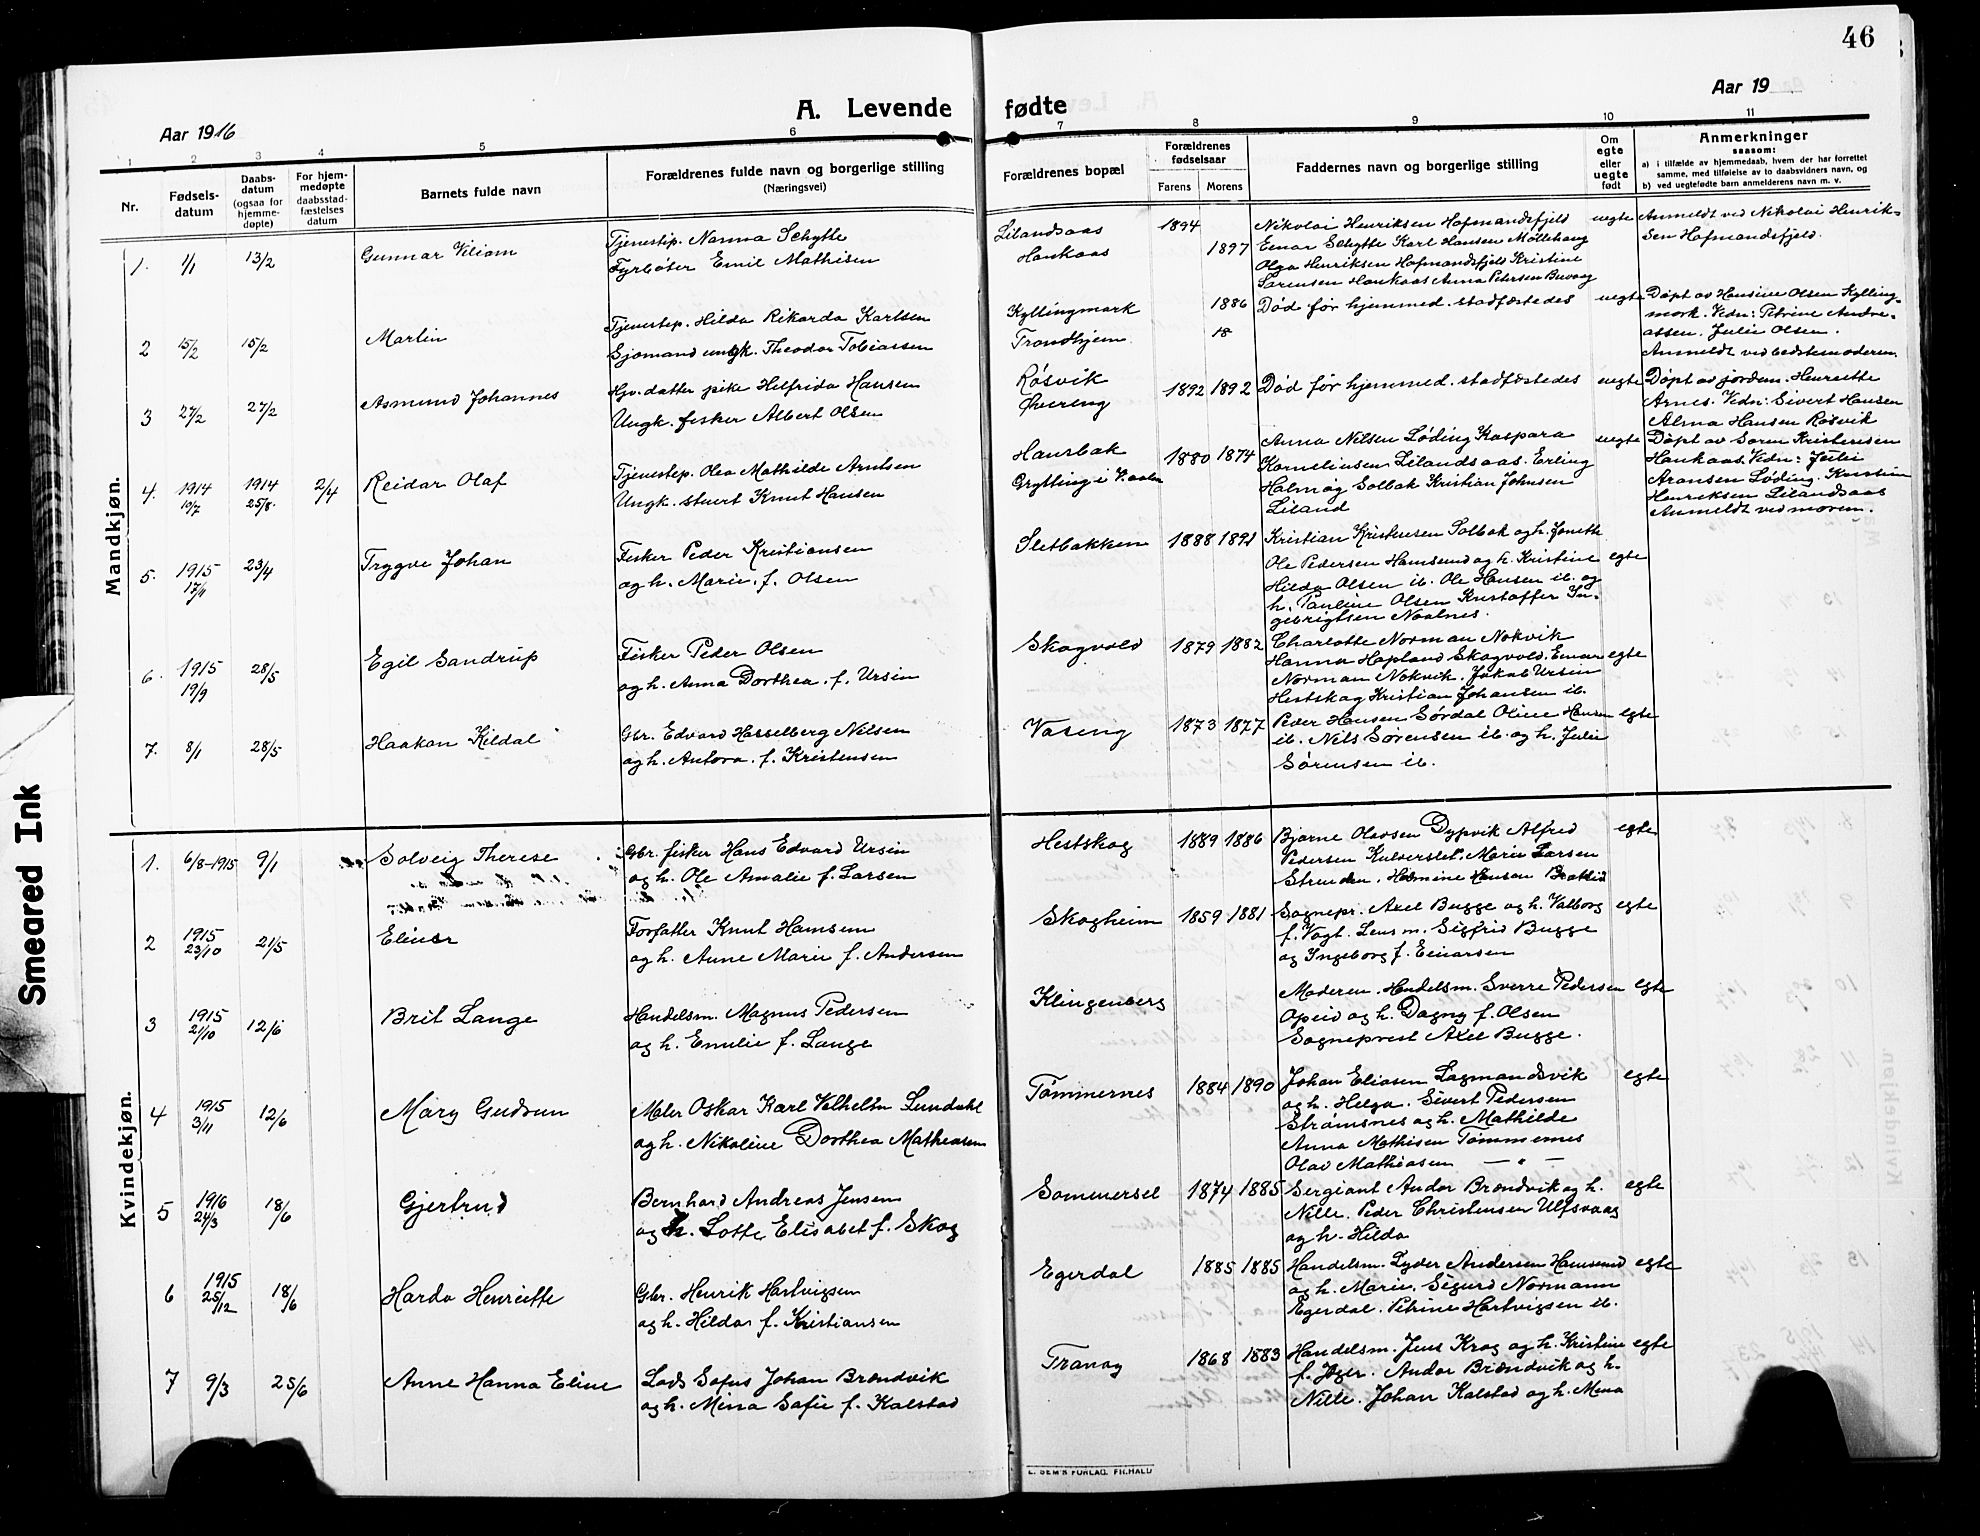 46
A. Levende fødte
Aar 1916
Aar 19
1 2 3 4 5 6 7 8 9 10 11
Nr.
Fødsels-
datum
Daabs-
datum
(ogsaa for
hjemme-
døpte)
For hjem-
medøpte
daabsstad-
fæstelses
datum
Barnets fulde navn
Forældrenes fulde navn og borgerlige stilling
(Næringsvei)
Forældrenes bopæl
Forældrenes
fødselsaar
Farens Morens
Faddernes navn og borgerlige stilling
Om
egte
eller
uegte
født
Anmerkninger
saasom:
a) i tilfælde av hjemmedaab, hvem der har forrettet
samme, med tilføielse av to daabsvidners navn, og
b) ved uegtefødte barn anmelderens navn m. v.
Mandkjøn.
1. 1/1 13/2 Gunnar Viliam
Tjenestep. Nanna Schytte
Fyrbøter Emil Mathisen
Lilandsaas 1894
Hankaas 1897
Nikolai Henriksen Hofmandsfjeld
Einar Schytte Karl Hansen Möllehaug
Olga Henriksen Hofmandsfjeld Kristine
Sørensen Hankaas Anna Petersen Buvaag
uegte
Anmeldt ved Nikolai Henrik-
sen Hofmandsfjeld.
2 15/2 15/2 Martin
Tjenestep. Hilda Rikarda Karlsen
Sjømand ungk. Theodor Tobiassen
Kyllingmark 1886
Trondhjem. 18
Død før hjemmed. stadfæstedes
uegte
Døpt av Hansine Olsen Kylling-
mark. Vidn: Petrine Andre-
assen. Julie Olsen.
Anmeldt ved bedstemoderen.
3 27/2 27/2 Asmund Johannes
Hjv. datter pike Helfrida Hansen
Ungk. fisker Albert Olsen
Røsvik
Øvereng 1892 1892
Død før hjemmed. stadfæstedes
uegte
Døpt av jordem. Henriette
Arnes. Vidn: Sivert Hansen
Alma Hansen Røsvik
4. 1914 10/7 1914 25/8. 2/4 Reidar Olaf
Tjenestep. Olea Mathilde Arntsen
Ungk. stuert Knut Hansen
Hansbak
Grytting i V.aalen 1880 1874
Anna Nilsen Løding Kaspara
Korneliusen Lilandsaas. Erling
Halmøg Solbak Kristian Johnsen
Liland
uegte
Døpt av Søren Kristensen
Hankaas. Vidn: Julie
Aronsen Løding. Kristine
Henriksen Lilandsaas
Anmeldt ved moren.
5. 1915 17/11 23/4 Trygve Johan
Fisker Peder Kristiansen
og h. Marie f. Olsen
Sletbakken 1888 1891
Kristian Kristensen Solbak og h. Jonette
Ole Pedersen Hamsund og h. Kristine
Hilda Olsen ib. Ole Hansen ib. og
h. Pauline Olsen Kristoffer In-
gebrigtsen Naalnes.
egte
6. 1915 19/9 28/5 Egil Sandrup
Fisker Peder Olsen
og h. Anna Dorthea f. Ursin
Skogvold 1879 1882
Charlotte Norman Nokvik
Hanna Hopland Skogvold. Einar
Norman Nokvik. Jakob Ursin
Hestskog Kristian Johansen ib.
egte
7. 8/1 28/5 Haakon Kildal
Gbr. Edvard Hasselberg Nilsen
og h. Antora f. Kristensen
Vaseng 1873 1877
Peder Hansen Sørdal Oline Hansen
ib. Nils Sørensen ib. og h. Julie
Sørensen ib.
egte
Kvindekjøn.
1. 6/8-1915 9/1 Solveig Therese
Gbr. fisker Hans Edvard Ursin
og h. Ole Amalie f. Larsen
Hestskog 1889 1886
Bjarne Olavsen Dypvik Alfred
Pedersen Kulverslet. Marie Larsen
Stranden. Hermine Hansen Brattlid
egte
2 1915 23/10 21/5 Elinor
Forfatter Knut Hamsun
og h. Anne Marie f. Andersen
Skogheim 1859 1881
Sognepr. Axel Bugge og h. Valborg
f. Vogt. Lensm. Sigfrid Bugge
og Ingeborg f. Einarsen
egte
3 1915 21/10 12/6 Brit Lange
Handelsm. Magnus Pedersen
og h. Emilie f. Lange
Klingenberg
Moderen. Handelsm. Sverre Pedersen
Opeid og h. Dagny f. Olsen
Sogneprest Axel Bugge.
egte
4 1915 3/11 12/6 Mary Gudrun
Maler Oskar Karl Vilhelm Lundahl
og h. Nikoline Dorthea Matheasen
Tømmernes 1884 1890
Johan Eliasen Lagmandsvik
og h. Helga. Sivert Pedersen
Strømsnes og h. Mathilde
Anna Mathisen Tømmernes
Olav Mathiasen — " —
egte
5 1916 24/3 18/6 Gjertrud
Bernhard Andreas Jensen
og h. Lotte Elisabet f. Skog
Sommersel 1874 1885
Sergiant Andor Brøndvik og h.
Nille. Peder Christensen Ulfsvaag
og h. Hilda
egte
6 1915 25/12 18/6 Harda Henriette
Gbr. Henrik Hartvigsen
og h. Hilda f. Kristiansen
Egerdal 1885 1885
Handelsm. Lyder Andersen Hamsund
og h. Marie. Sigurd Normann
Egerdal. Petrine Hartvigsen ib.
egte
7 9/3 25/6 Anne Hanna Eline
Lods Sofus Johan Brøndvik
og h. Mina Sofie f. Kalstad
Tranøy 1868 1883
Handelsm. Jens Krog og h. Kristine
f. Jæger. Andor Brøndvik og h.
Nille. Johan Kalstad og h. Mina
egte
E. SEM'S FORLAG, FR.HALD
Smeared Ink